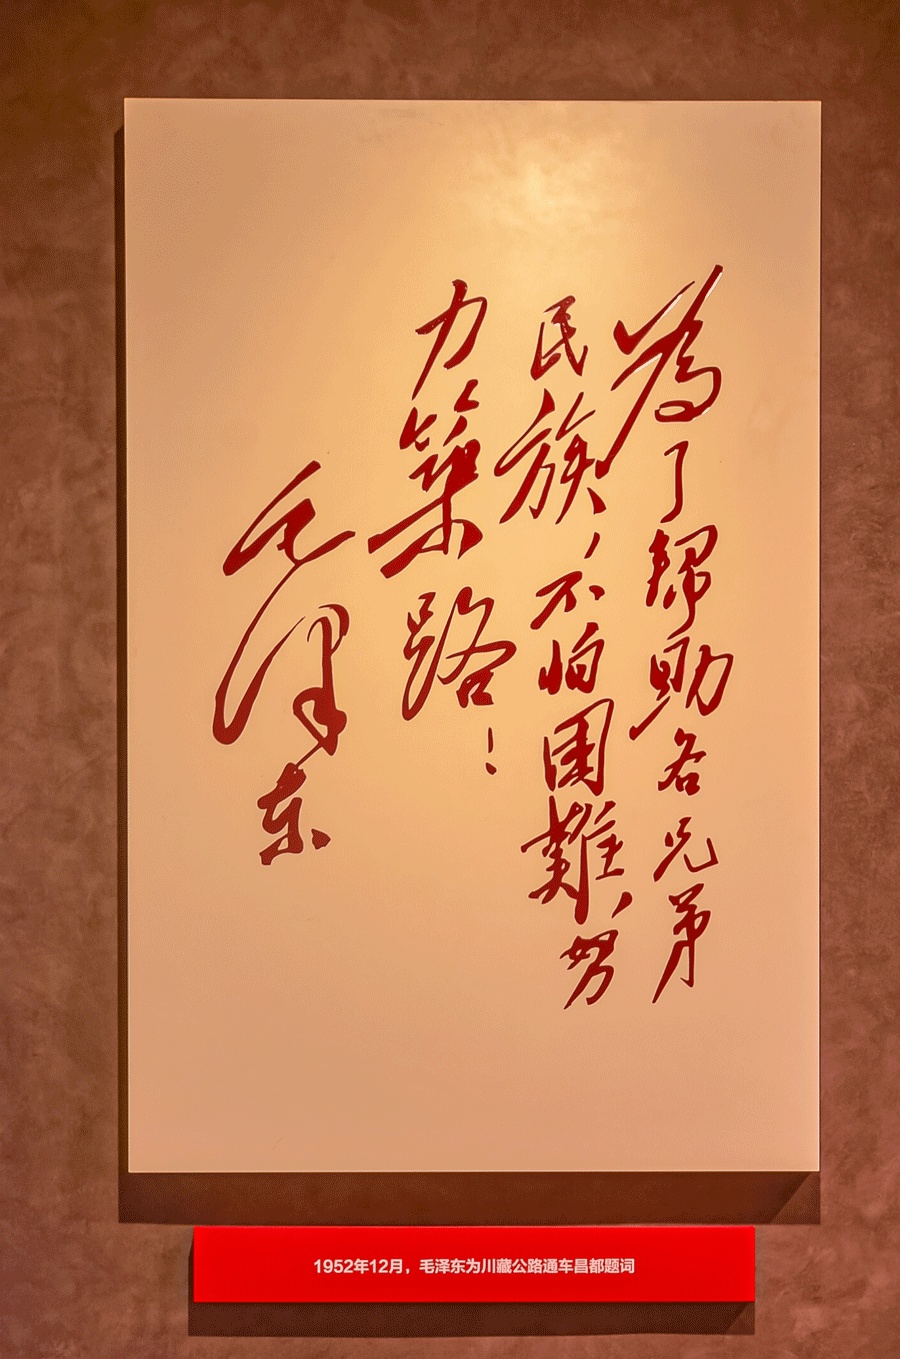 為了幫助各兄弟
民族，不怕困難，努
力築路！
毛澤东
1952年12月，毛泽东为川藏公路通车昌都题词